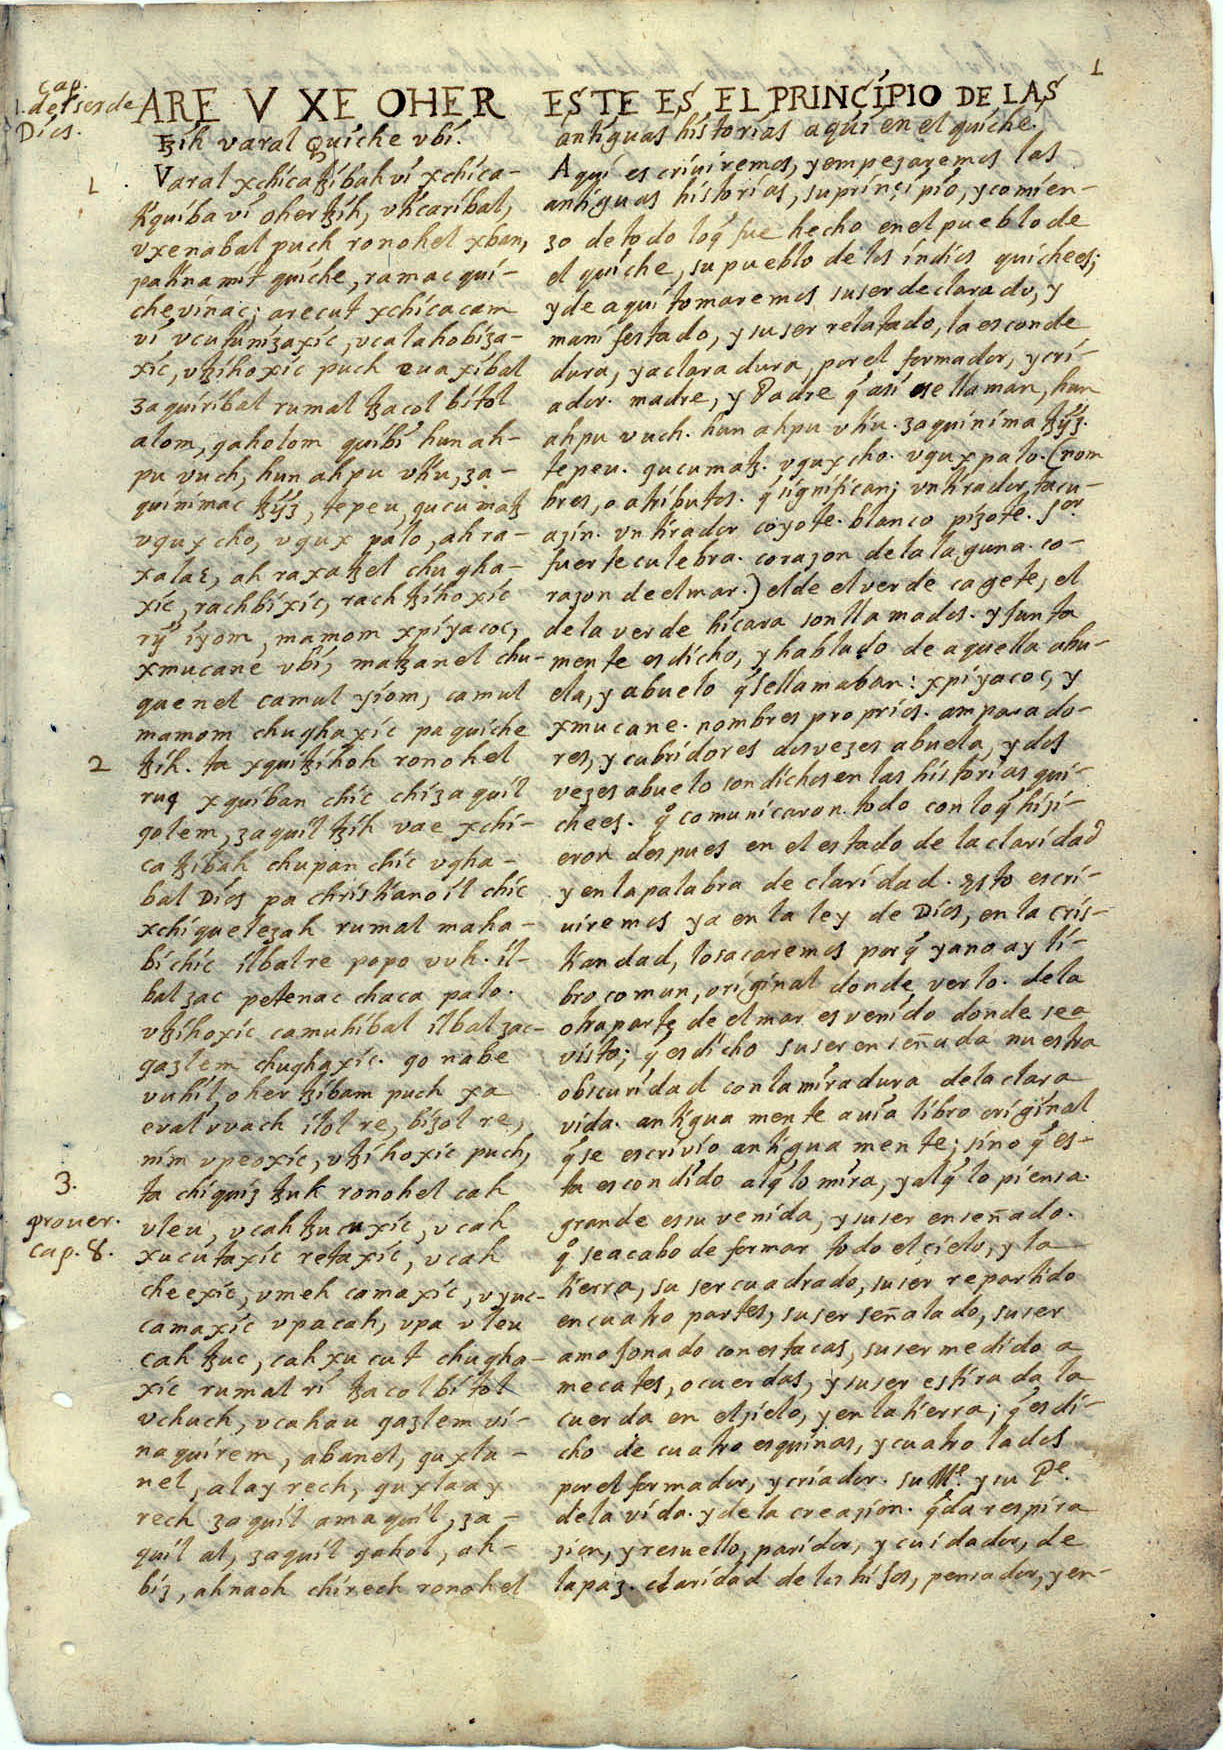 1
cap.
1. del ser de
Dios.
ARE V XE OHER
ꜩíh varal Quíche vbí.
1
Varal xchícaꜩíbah ví xchíca-
tíquíba ví oher ꜩíh, vtícaríbal,
vxenabal puch ronohel xban,
pa tínamít quíche, ramac quí-
che vínac; arecut xchícacam
ví vcutuníꜫaxíc, vcalahobíꜫa-
xíc, vꜩíhoxíc puch euaxíbal
ꜫaquíríbal rumal ꜩacol bítol
alom, qaholom quíbí hun ah-
pu vuch, hun ahpu vtíu, ꜫa-
quínímac ꜩÿꜫ, tepeu, qucumaꜩ
vqux cho, vqux palo, ah ra-
xa la, ah raxa ꜩel chugha-
xíc, rachbíxíc, rach ꜩíhoxíc
rÿ íyom, mamom xpíyacoc,
xmucane vbí, maꜩanel chu-
quenel camul yíom, camul
mamom chughaxíc pa quíche
2
ꜩíh. ta xquíꜩíhoh ronohel
ruq xquíban chíc chíꜫaquíl
qolem, ꜫaquíl ꜩíh vae xchí-
ca ꜩíbah chupan chíc vgha-
bal Díos pa chrístíanoíl chíc
xchíqueleꜫah rumal maha-
bíchíc ílbal re popo vuh. íl-
bal ꜫac petenac chaca palo.
vꜩíhoxíc camuhíbal ílbal ꜫac-
qaꜫlem chughaxíc. qo nabe
vuhíl, oher ꜩíbam puch xa
eval vvach ílol re, bíꜫol re,
ním vpeoxíc, vꜩíhoxíc puch,
3.
ta chíquíꜫ ꜩuk ronohel cah
prouer.
cap. 8.
vleu, vcah ꜩucuxíc, vcah
xucutaxíc retaxíc, vcah
cheexíc, vmeh camaxíc, vyuc-
camaxíc vpa cah, vpa vleu
cah ꜩuc, cah xucut chugha-
xíc rumal rí ꜩacol bítol
vchuch, vcahau qaꜫlem ví-
naquírem, abanel, quxla-
nel, alay rech, quxlaay
rech ꜫaquíl amaquíl, ꜫa-
quíl al, ꜫaquíl qahol, ah-
bíꜫ, ahnaoh chírech ronohel
ESTE ES EL PRINCIPIO DE LAS
antíguas hístorías aquí en el quíche.
Aquí escríuíremos, y empezaremos las
antíguas hístorías, su príncípío, y comíen-
zo de todo lo q̃ fue hecho en el pueblo de
el quíche, su pueblo de los índíos quíchees;
y de aquí tomaremos su ser declarado, y
manífestado, y su ser relatado, la esconde
dura, y aclaradura, por el formador, y crí-
ador. madre, y Padre q̃ así se llaman, hun
ahpu vuch. hun ahpu vtíu. ꜫaquíníma ꜩÿꜫ.
tepeu. qucumaꜩ. vqux cho. vqux palo. (nom
bres, o atríbutos. q̃ sígnífícan; vn tírador, tacu-
azín. vn tírador coyote. blanco pízote. sor
fuerte culebra. corazon de la laguna. co-
razon de el mar.) el de el verde cagete, el
de la verde hícara son llamados. y junta
mente es dícho, y hablado de aquella abu-
ela, y abuelo q̃ se llamaban: xpíyacoc, y
xmucane. nombres propríos. amparado-
res, y cubrídores dos vezes abuela, y dos
vezes abuelo son díchos en las hístorías quí-
chees. q̃ comunícaron todo con lo q̃ hízí-
eron despues en el estado de la clarídad
y en la palabra de clarídad. Esto escrí-
uíremos ya en la ley de Díos, en la crís-
tíandad, lo sacaremos por q̃ ya no ay lí-
bro comun, orígínal donde verlo. de la
otra parte de el mar es venído donde sea
vísto; q̃ es dícho su ser enseñada nuestra
obscurídad con la míradura de la clara
vída. antíguamente auía líbro orígínal
q̃ se escrívío antíguamente; síno q̃ es-
ta escondído al q̃ lo míra, y al q̃ lo píensa.
grande es su venída, y su ser enseñado.
q̃ se acabo de formar todo el cíelo, y la
tíerra, su ser cuadrado, su ser repartído
en cuatro partes, su ser señalado, su ser
amojonado con estacas, su ser medído a
mecates, o cuerdas, y su ser estírada la
cuerda en el zíelo, y en la tíerra; q̃ es dí-
cho de cuatro esquínas, y cuatro lados
por el formador, y críador. su Me. y su Pe.
de la vída. y de la creazíon. q̃ da respíra
zíon, y resuello, parídor, y cuídador, de
la paz. clarídad de los híjos, pensador, y en-